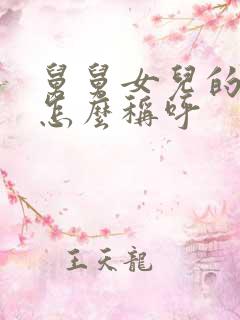 舅舅女兒的
怎麼稱呼
王天龍